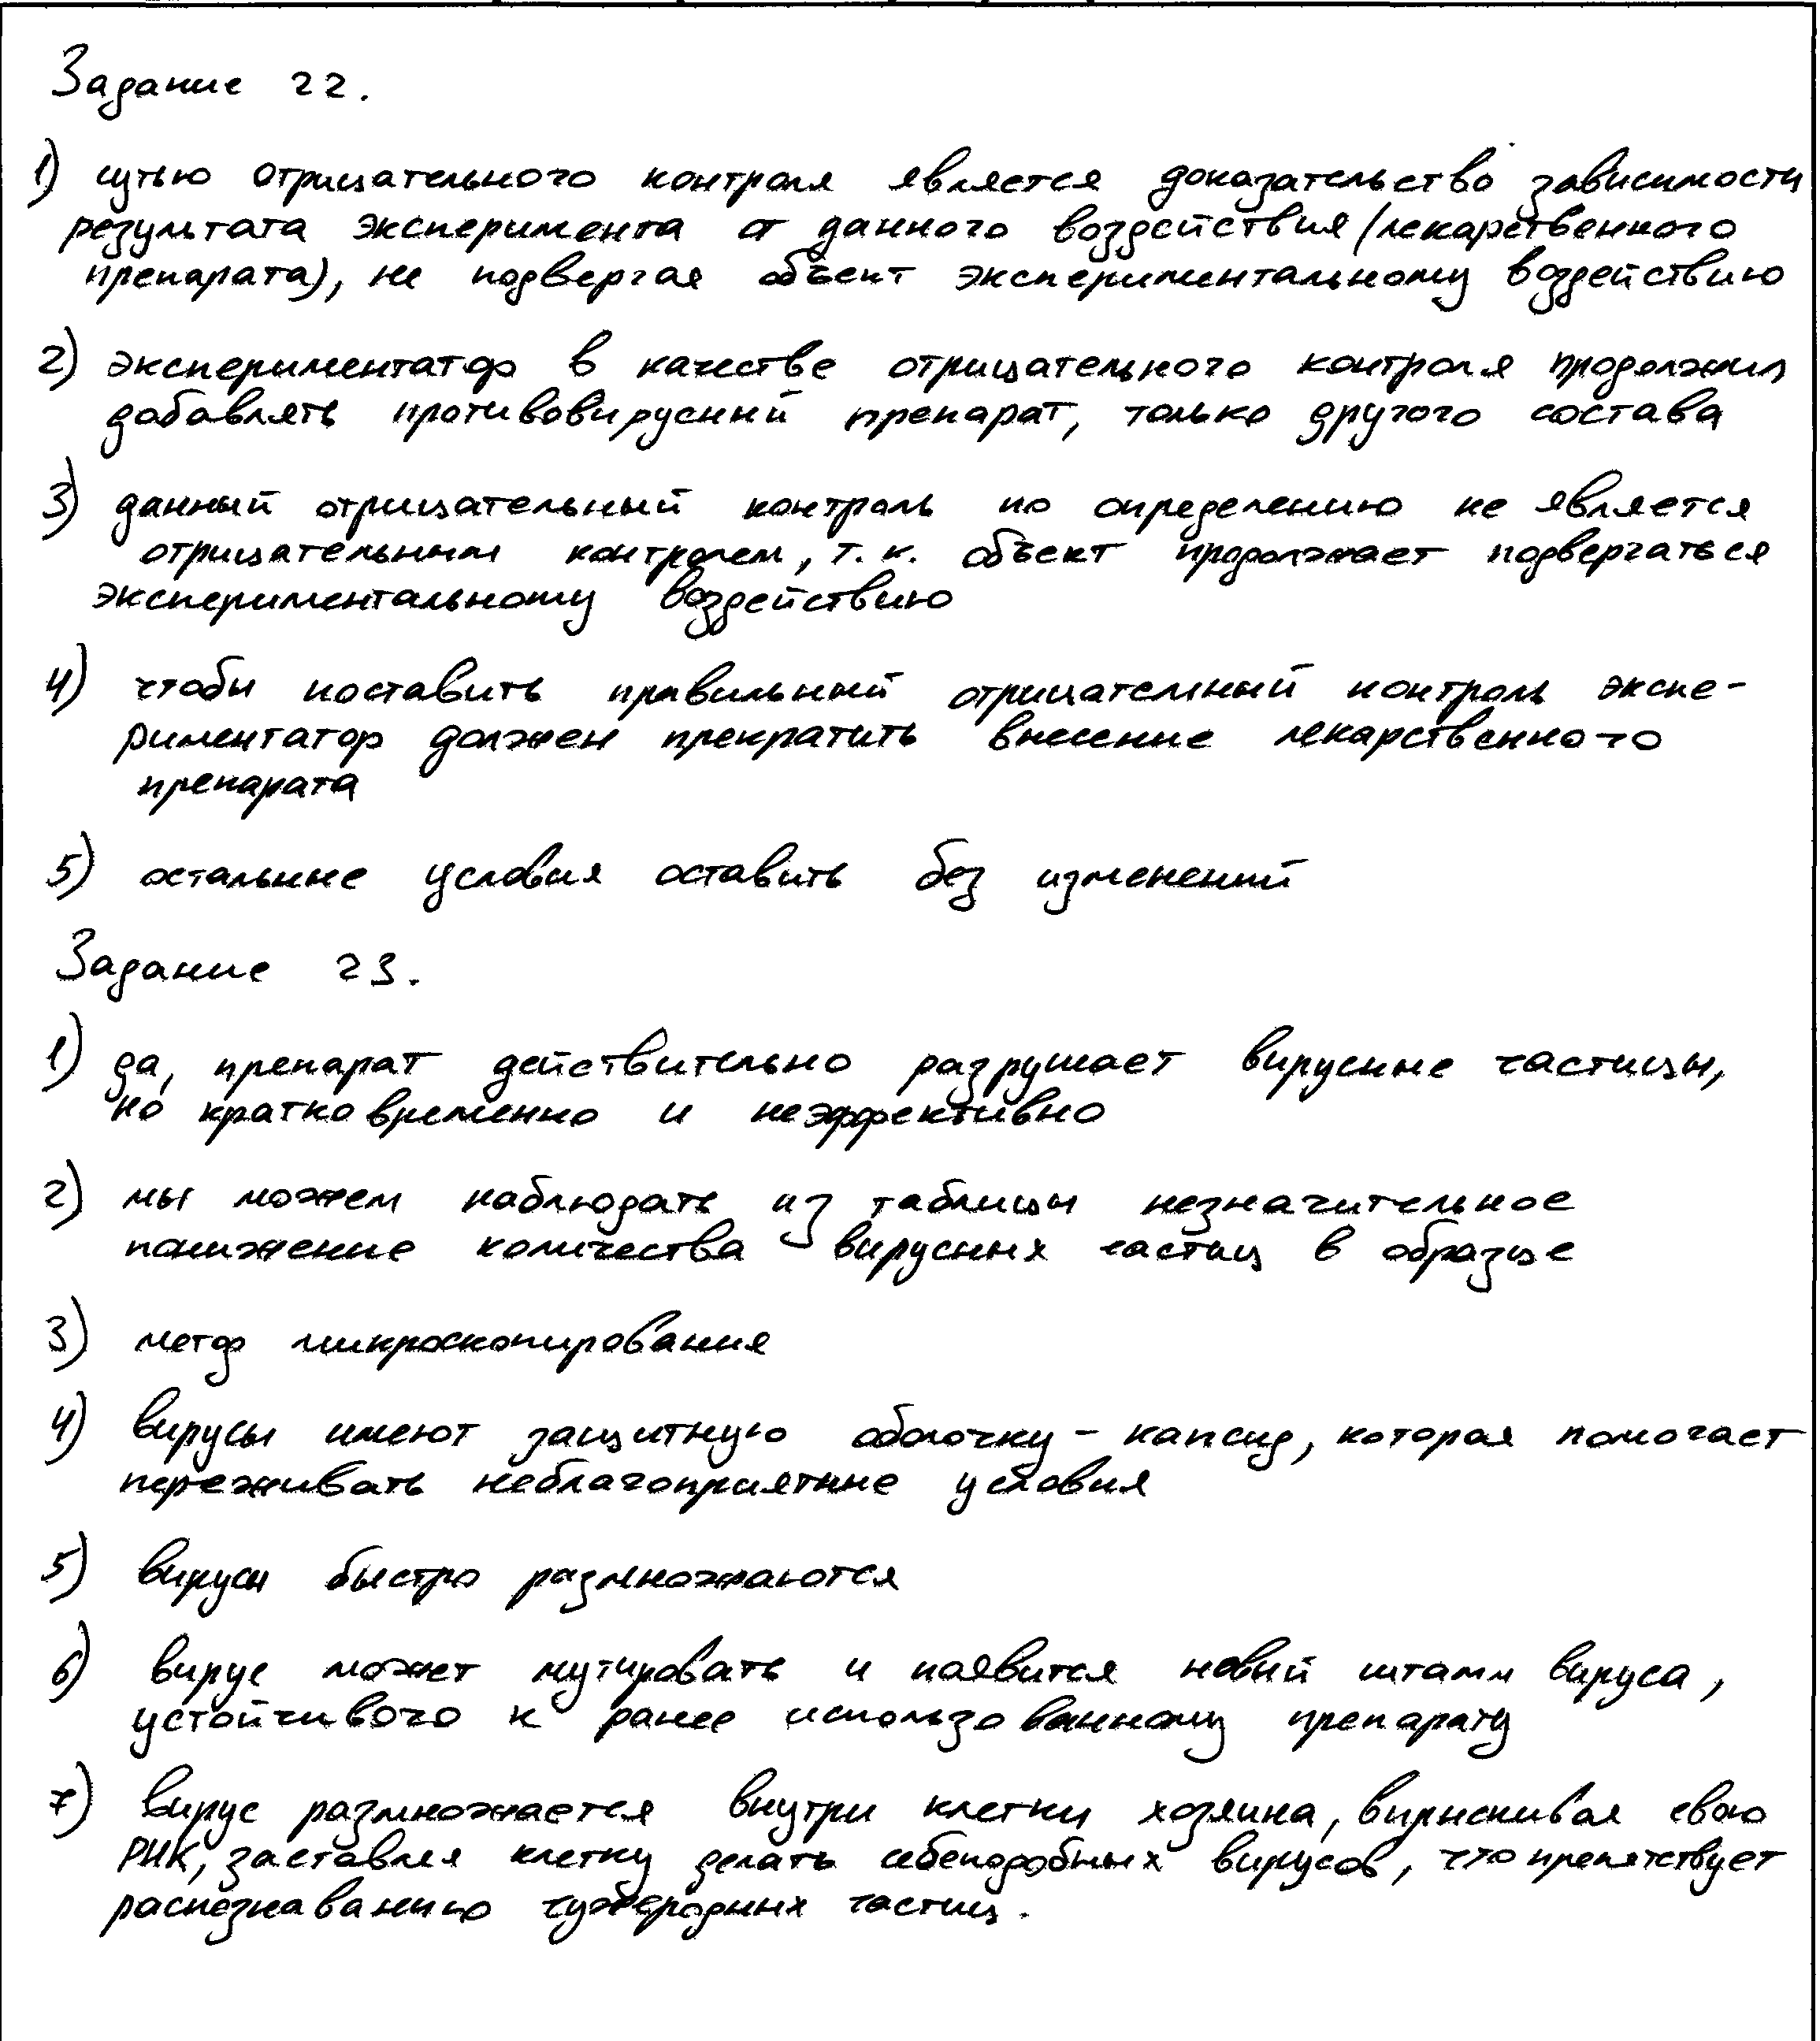 Задание 22.
1) сутью отрицательного контроля является доказательство зависимости
результата эксперимента от данного воздействия (лекарственного
препарата), не подвергая объект экспериментальному воздействию
2) экспериментатор в качестве отрицательного контроля продолжил
добавлять противовирусный препарат, только другого состава
3) данный отрицательный контроль по определению не является
отрицательным контролем, т.к. объект продолжает подвергаться
экспериментальному воздействию
4) чтобы поставить правильный отрицательный контроль экспе-
риментатор должен прекратить внесение лекарственного
препарата
5) остальные условия оставить без изменений
Задание 23.
1) да, препарат действительно разрушает вирусные частицы,
но кратковременно и неэффективно
2) мы можем наблюдать из таблицы незначительное
понижение количества вирусных частиц в образце
3) метод микроскопирования
4) вирусы имеют защитную оболочку - капсид, которая помогает
переживать неблагоприятные условия
5) вирусы быстро размножаются
6) вирус может мутировать и появится новый штамм вируса,
устойчивого к ранее использованному препарату
7) вирус размножается внутри клетки хозяина, впрыскивая свою
РНК, заставляя клетку делать себеподобных вирусов, что препятствует
распознаванию чужеродных частиц.